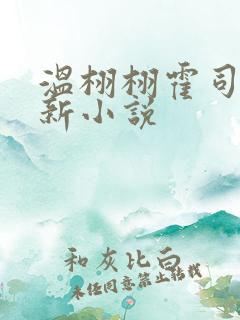 温栩栩霍司
新小说
和灰比白
未经同意禁止转载